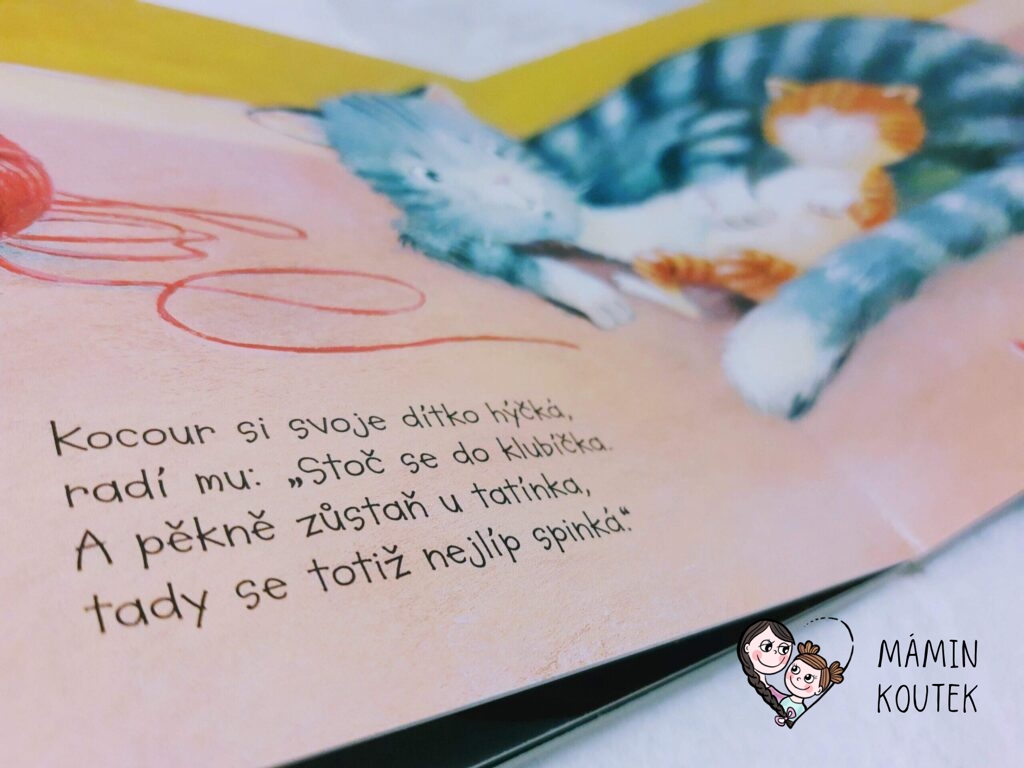 Kocour si svoje dítko hýčká,
radí mu: „Stoč se do klubíčka.
A pěkně zůstaň u tatínka,
tady se totiž nejlíp spinká.“
MÁMIN
KOUTEK